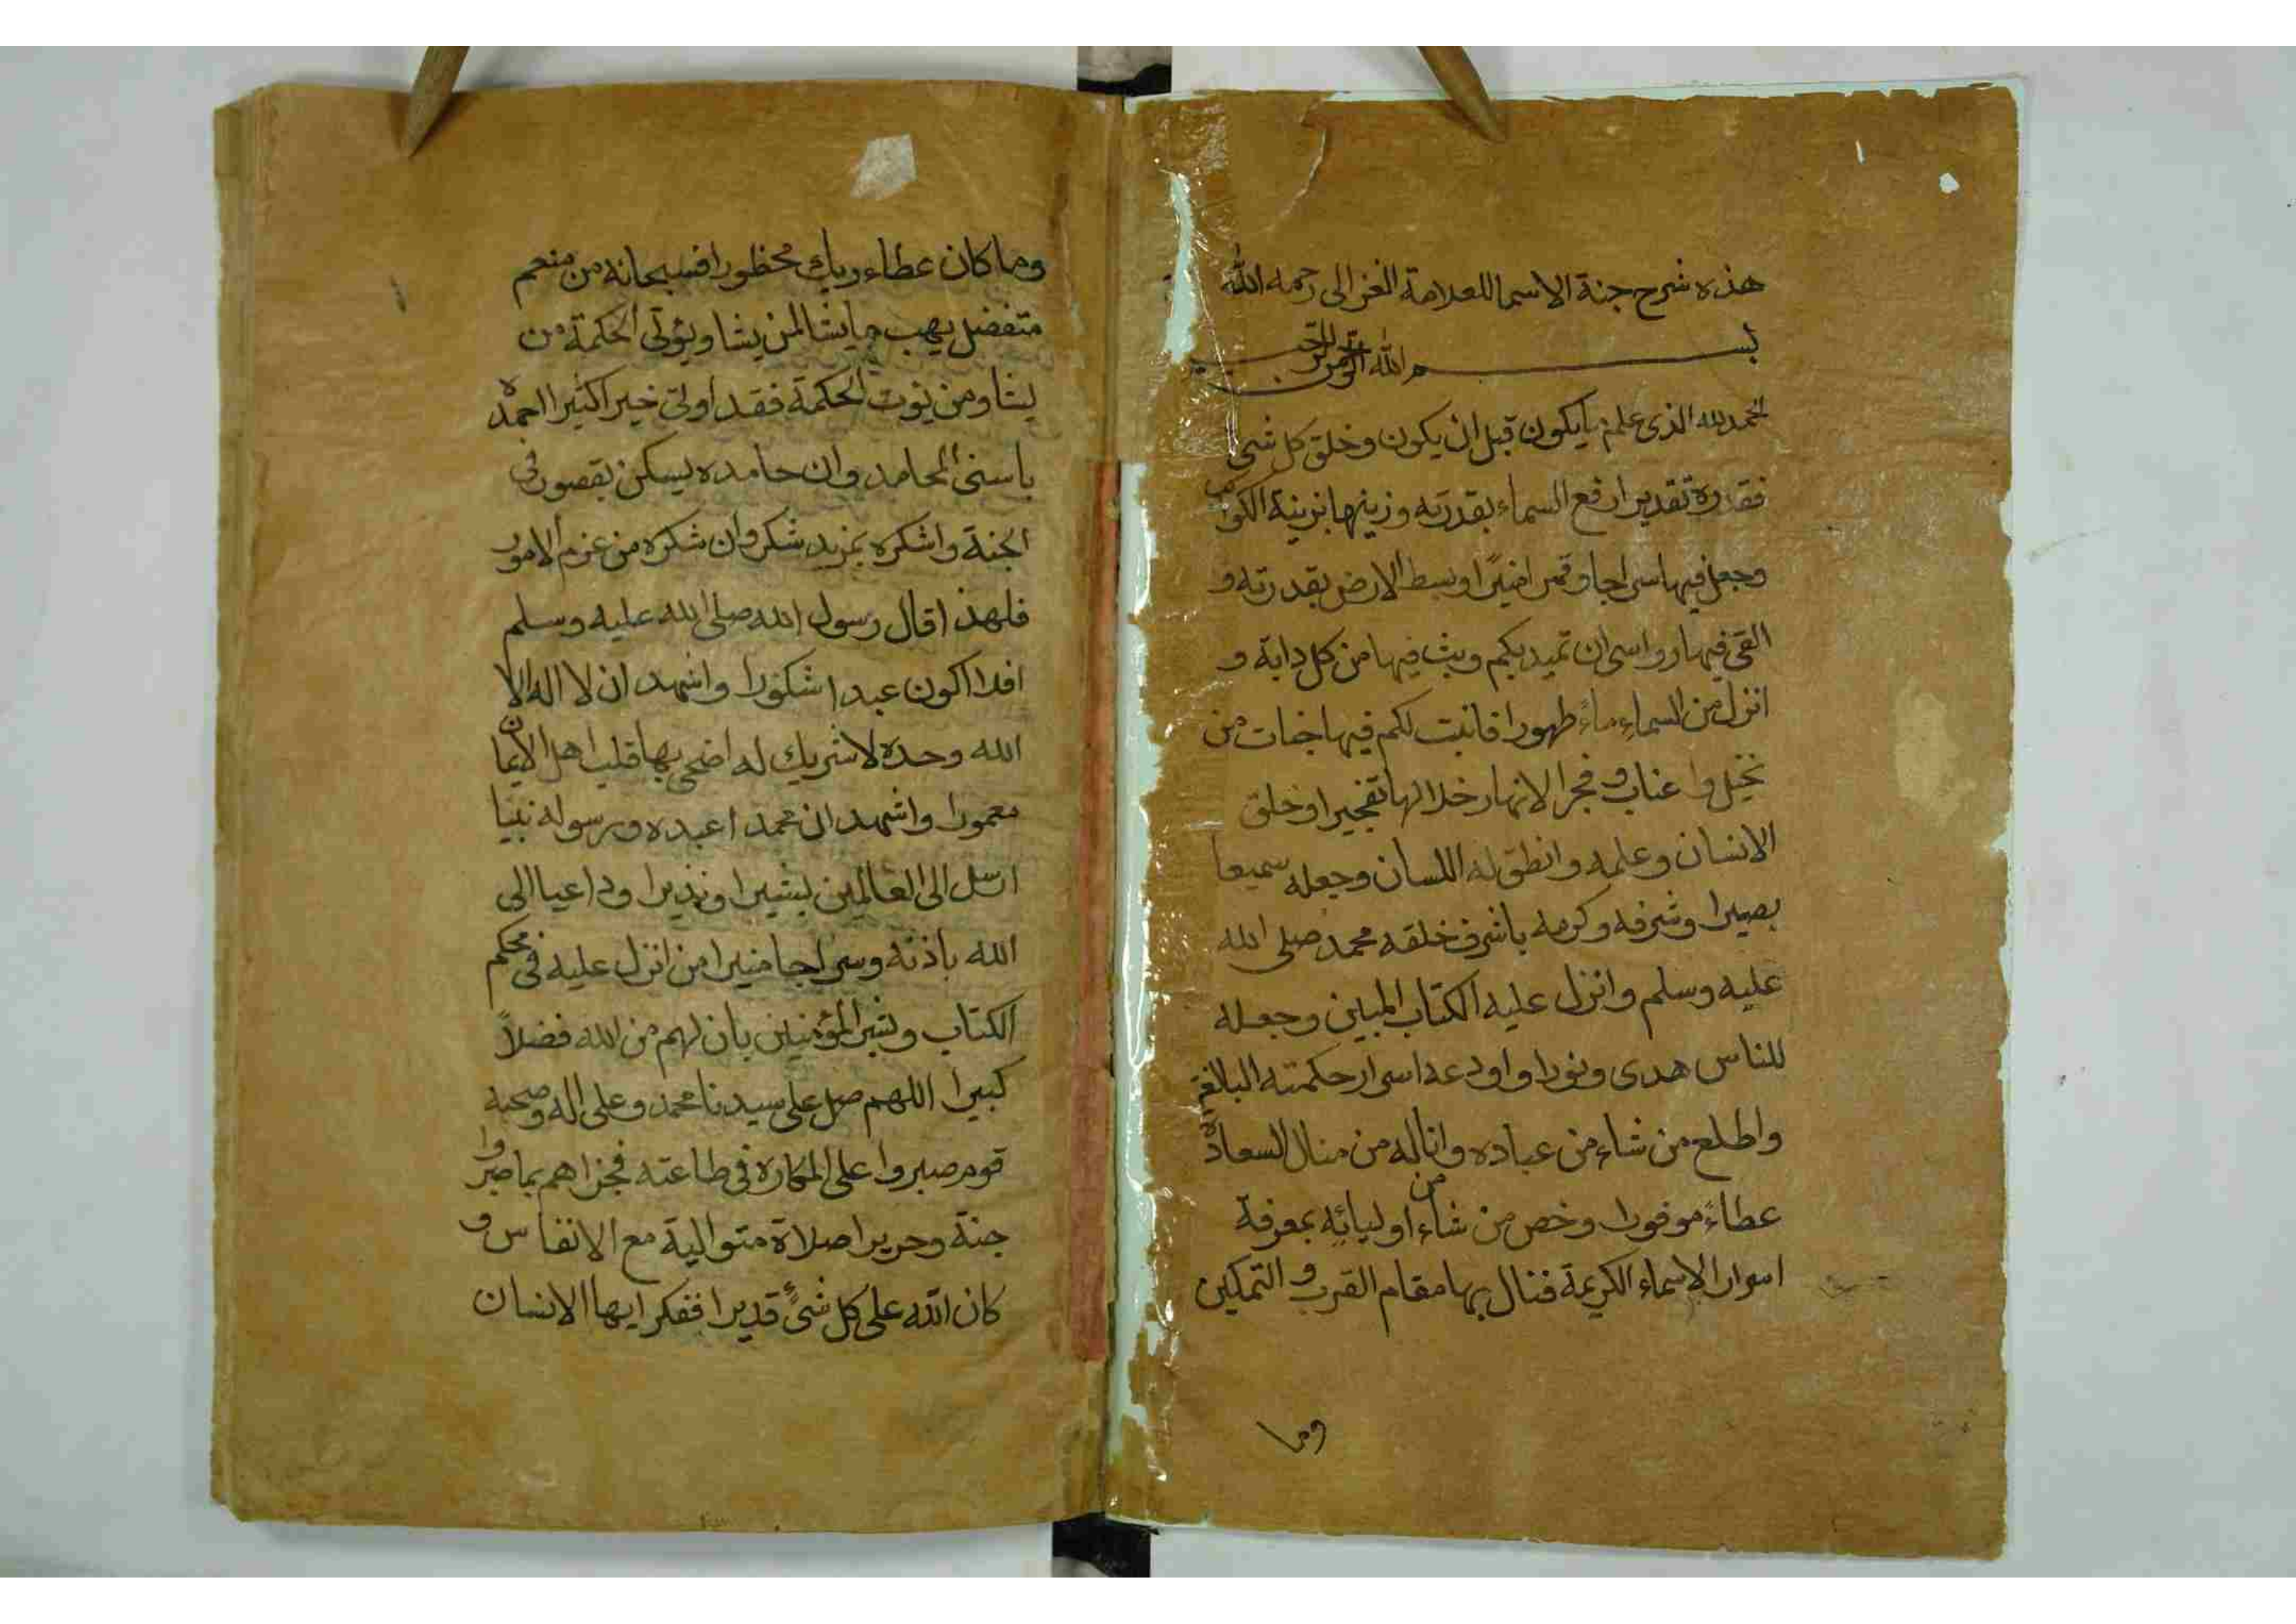 هذه شرح جنة الاسما للعلامة الغزالى رحمه الله
بسم الله الرحمن الرحيم
الحمد لله الذى علم ما يكون قبل ان يكون وخلق كل شى
فقدره تقديرا رفع السماء بقدرته وزينها بزينة الكواكب
وجعل فيها سراجا وقمرا منيرًا وبسط الارض بقدرته و
القى فيها رواسى ان تميد بكم وبث فيها من كل دابة و
انزل من السماء ماءً طهورا فانبت لكم فيها جنات من
نخيل واعناب وفجر الانهار خلالها تفجيرا وخلق
الانسان وعلمه وانطق له اللسان وجعله سميعا
بصيرا وشرفه وكرمه باشرف خلقه محمد صلى الله
عليه وسلم وانزل عليه الكتاب المبين وجعله
للناس هدى ونورا واودعه اسرار حكمته البالغة
واطلع من شاء من عباده واناله من منال السعادة
عطاءً موفورا وخص من شاء من اوليائه بمعرفة
اسرار الاسماء الكريمة فنال بها مقام القرب و التمكين
وما
وما كان عطاء ربك محظورا فسبحانه من منعم
متفضل يهب ما يشا لمن يشا ويؤتى الحكمة من
يشا ومن يوت الحكمة فقد اوتى خيرا كثيرا احمده
باسنى المحامد وان حامده يسكن بقصور فى
الجنة واشكره بمزيد شكر وان شكره من عزم الامور
فلهذا قال رسول الله صلى الله عليه وسلم
افلا اكون عبدا شكورا واشهد ان لا اله الا
الله وحده لا شريك له اضحى بها قلب اهل الايمان
معمورا واشهد ان محمدا عبده ورسوله نبيا
ارسل الى العالمين بشيرا ونذيرا وداعيا الى
الله باذنه وسراجا منيرا من انزل عليه فى محكم
الكتاب وبشر المؤمنين بان لهم من الله فضلاً
كبيرا اللهم صل على سيدنا محمد وعلى اله وصحبه
قوم صبروا على المكاره فى طاعته فجزاهم بما صبروا
جنة وحريرا صلاة متوالية مع الانفاس و
كان الله على كل شىءٍ قديرا ففكر ايها الانسان